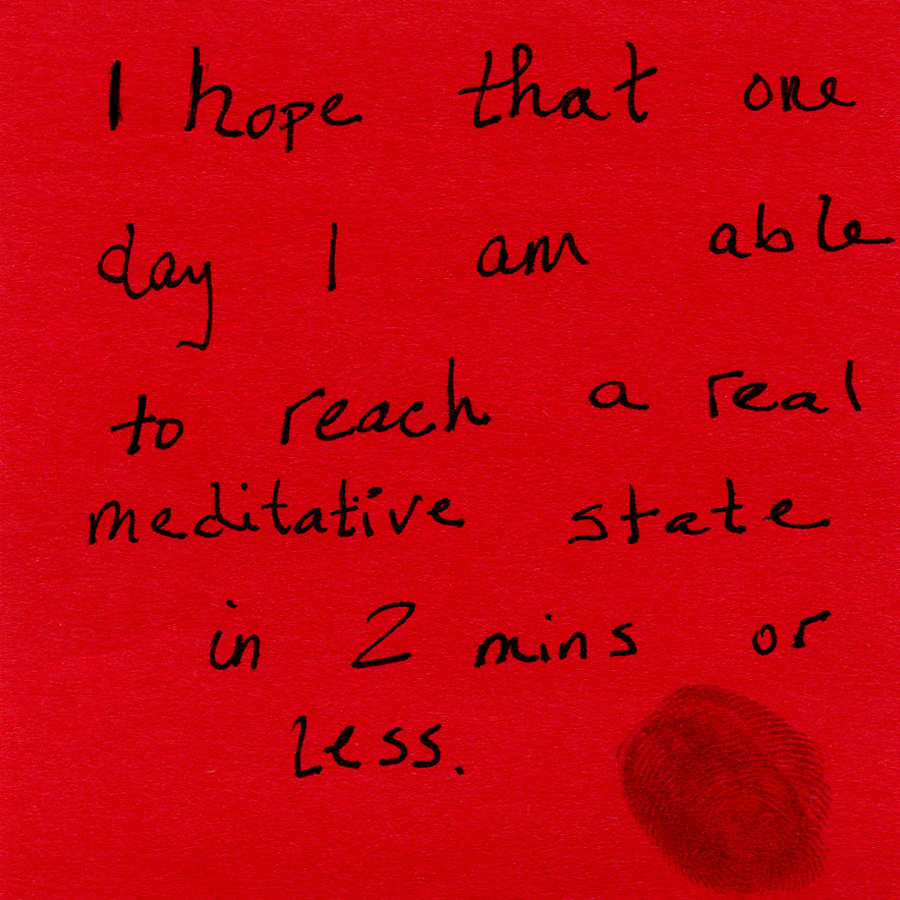 I hope that one
day I am able
to reach a real
meditative state
in 2 mins or
less.